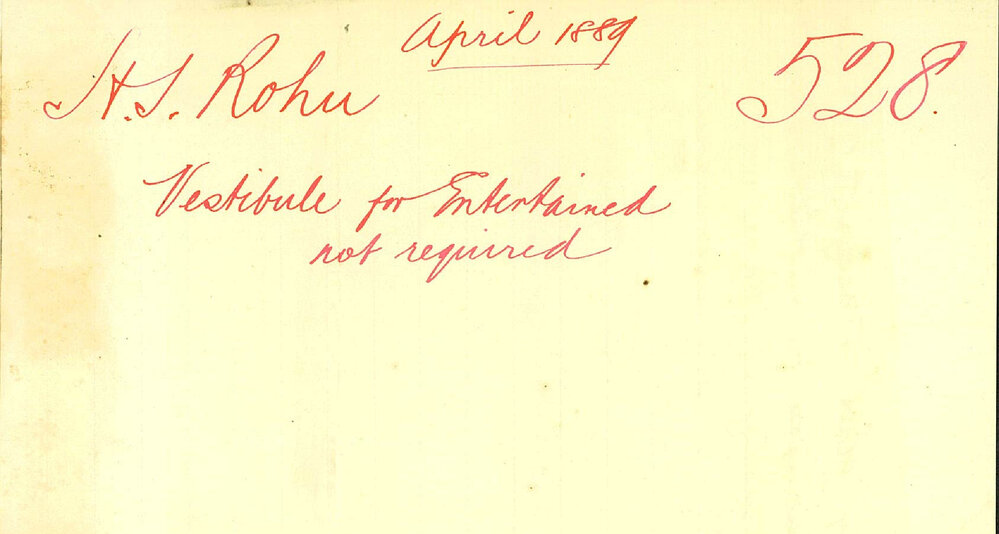 April 1889
H. S. Rohu 528.
Vestibule for Entertained
not required